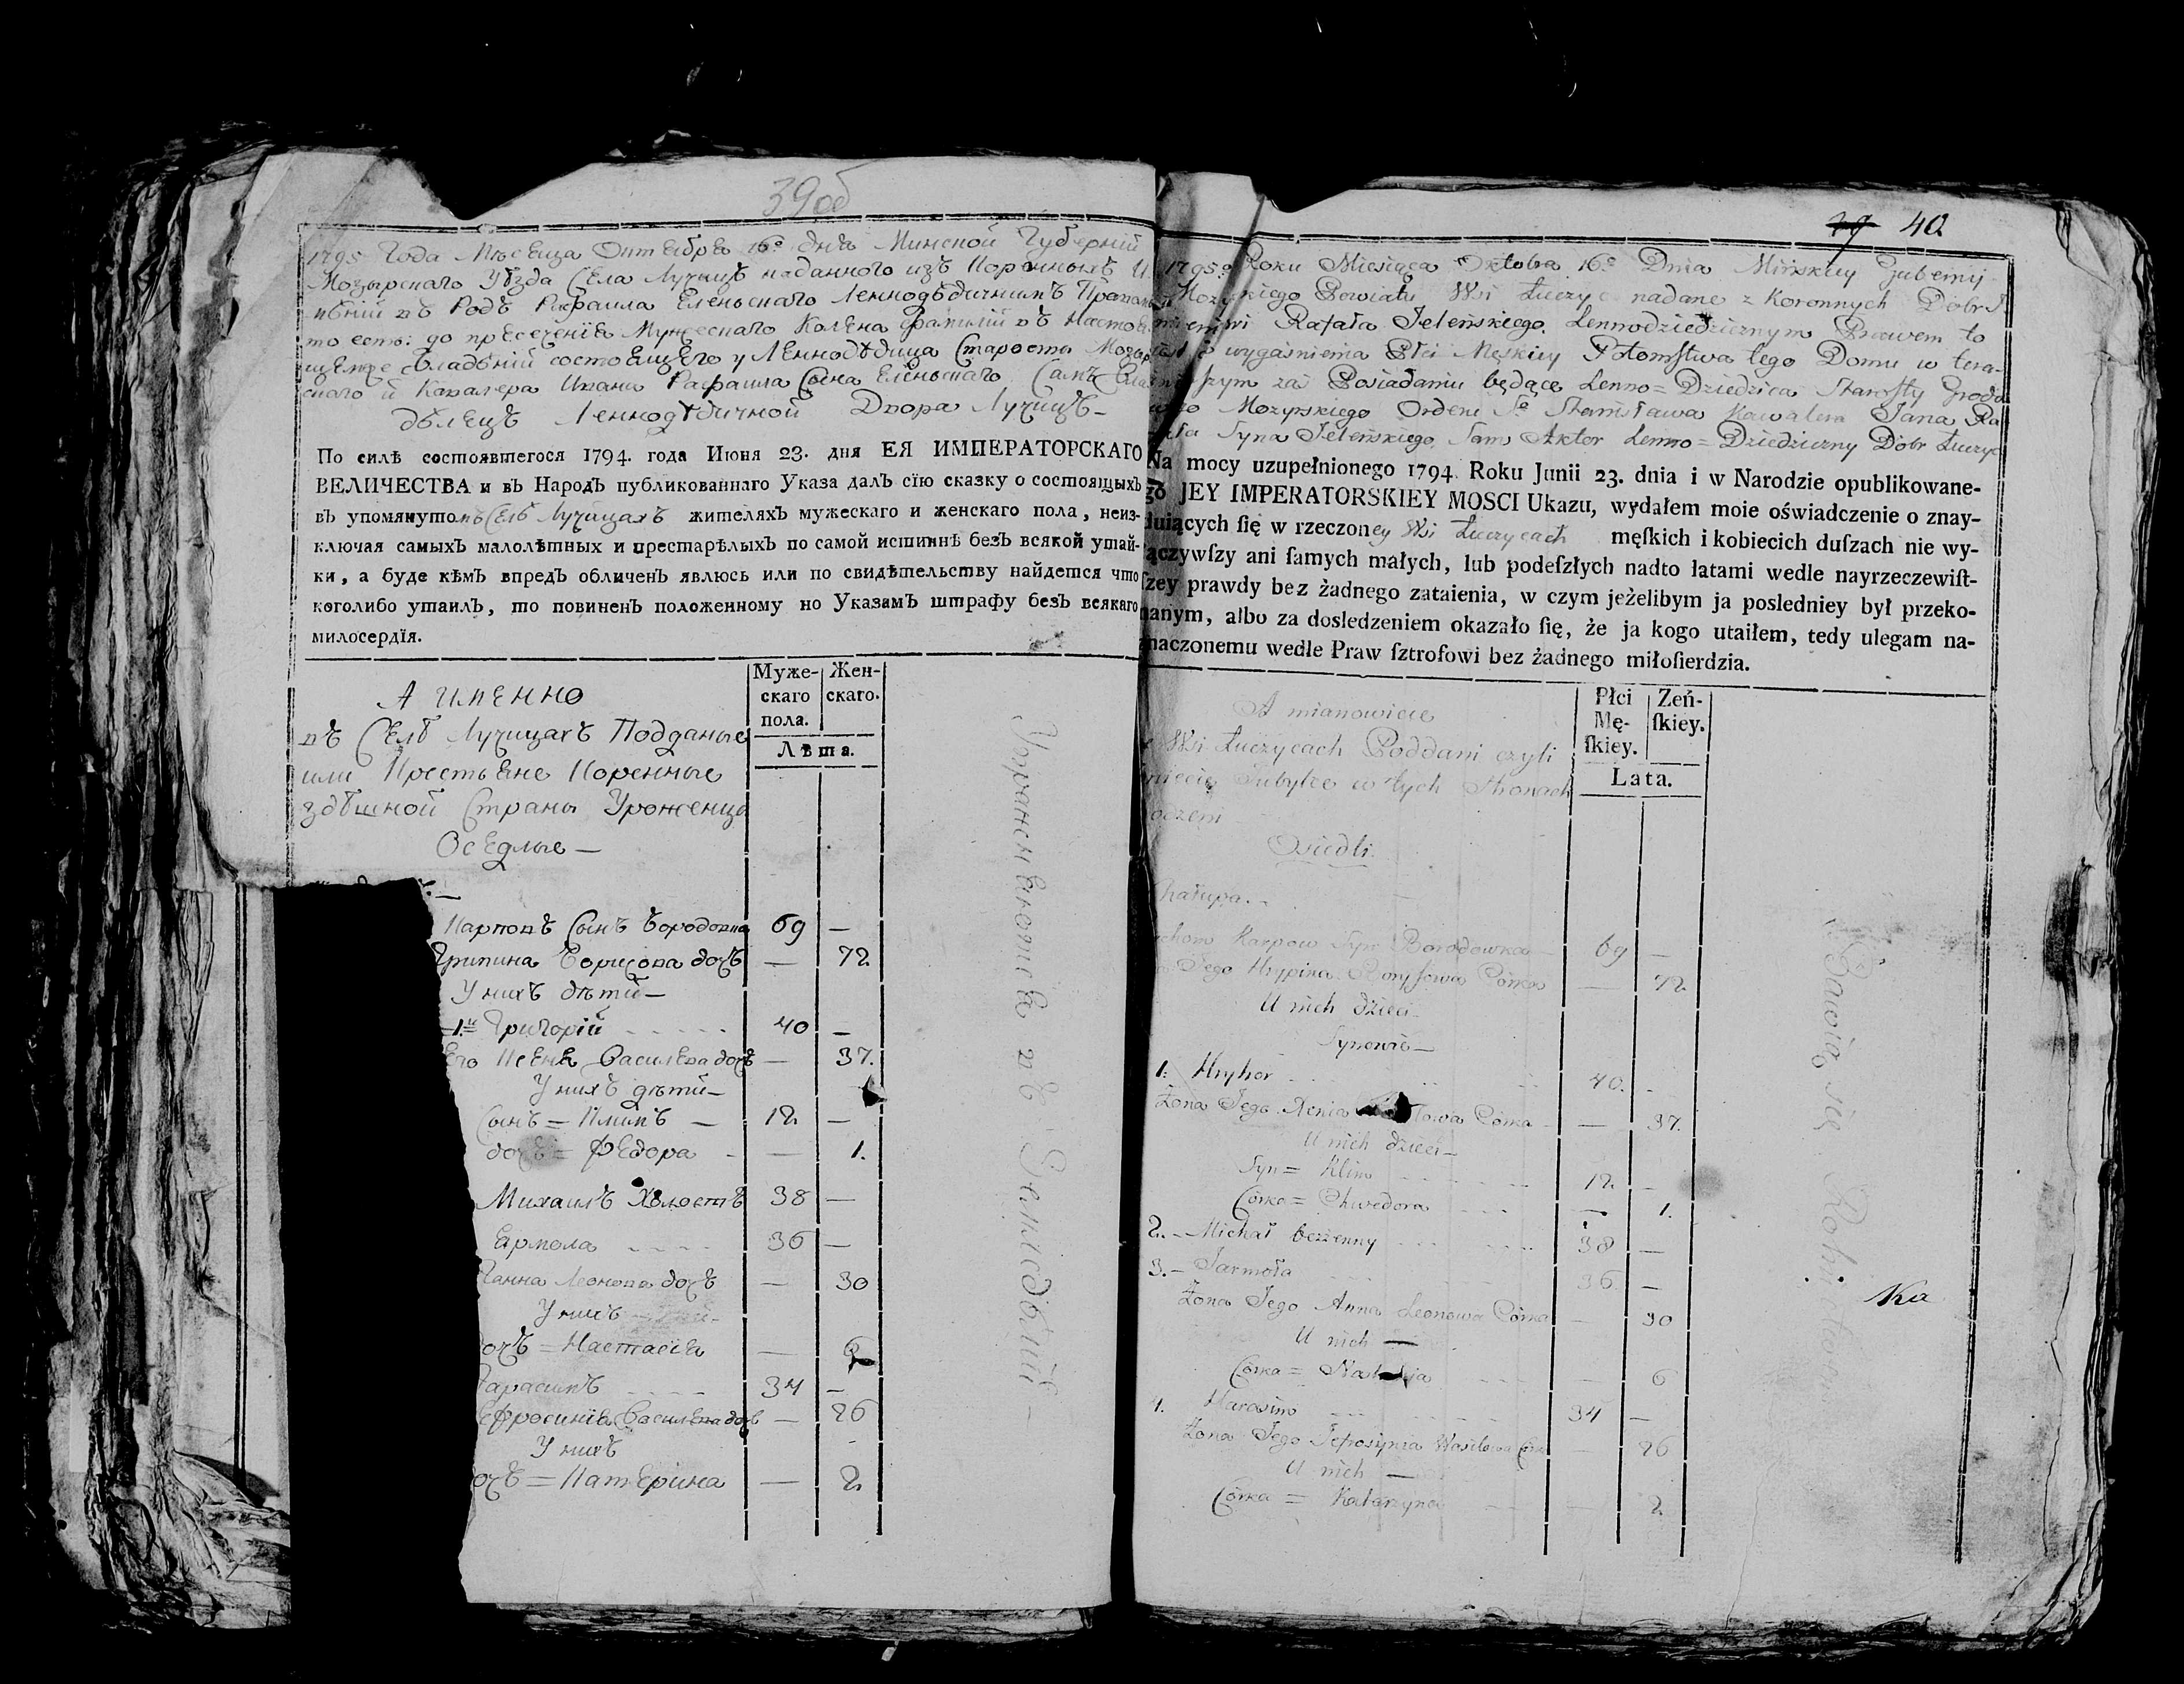 39об
1795 Года Мѣсеца Октебра 16º дня Минской Губерній
Мозырскаго Уѣзда Села Лучицъ наданного изъ Коронныхъ И
Родъ Рафаила Еленьскаго Леннодѣдичнымъ
то есть: до пресеченіе Мужескаго Колена фамилій въ Насто
щемже Владѣній состоящего у Леннодѣдица Старосты Мозыр
скаго и Кавалера Ивана Рафаила Сына Еленьскаго Самъ
дѣлецъ Леннодѣдичной Двора Лучицъ
По силѣ состоявшегося 1794. года Июня 23. дня ЕЯ ИМПЕРАТОРСКАГО
ВЕЛИЧЕСТВА и въ Народъ публикованнаго Указа далъ сїю сказку о состоящыхъ
въ упомянутомъ Селѣ Лучицахъ жителяхъ мужескаго и женскаго пола, неиз-
ключая самыхъ малолѣтныхъ и престарѣлыхъ по самой истиннѣ безъ всякой утай-
ки, а буде кѣмъ впредъ обличенъ явлюсь или по свидѣтельству найдется что
коголибо утаилъ, то повиненъ положенному по Указамъ штрафу безъ всякаго
милосердїя.
Муже-скаго пола.
Жен-скаго.
Лѣта.
А именно
въ Селѣ Лучицахъ Подданые
или Крестьяне Коренные
здѣшной Страны Уроженцы
Оседлые —
Карповъ Сынъ Бородовка 69 —
Грипина Борисова дочь — 72
У нихъ дѣти —
1. Григорій 40 —
Его Ксеня Василева дочь — 37.
У нихъ дѣти —
Сынъ = Климъ — 12 —
дочь = Федора — 1.
Михаилъ Холостъ 38 —
Ермола 36 —
Ганна Леонова дочь — 30
У нихъ
очь = Настасія — 6
Гарасимъ 34 —
Ефросинія Василева дочь — 26
У нихъ
очь = Катерина — 2
39 40
1795º Roku Miesiąca Oktobra 16º Dnia Mińskiey Gubernij
Mozyrskiego Powiatu Wsi Łuczyc nadane z Koronnych Dobr I
Rafała Jeleńskiego Lennodziedzicznym Prawem to
wygaśnienia Płci Męskiey Potomstwa tego Domu w tera-
szym zaś Posiadaniu będące Lenno=Dziedzica Starosty Grodo
Mozyrskiego Orderu Sº Stanisława Kawalera Jana Ra
ła Syna Jeleńskiego Sam Aktor Lenno=Dziedziczny Dobr Łuczyc
Na mocy uzupełnionego 1794. Roku Junii 23. dnia i w Narodzie opublikowane-
go JEY IMPERATORSKIEY MOSCI Ukazu, wydałem moie oświadczenie o znay-
duiących ſię w rzeczoney Wsi Łuczycach męſkich i kobiecich duſzach nie wy-
łączywſzy ani ſamych małych, lub podeſzłych nadto latami wedle nayrzeczewiſt-
ſzey prawdy bez żadnego zataienia, w czym jeżelibym ja posledniey był przeko-
nanym, albo za dosledzeniem okazało ſię, że ja kogo utaiłem, tedy ulegam na-
znaczonemu wedle Praw ſztrofowi bez żadnego miłoſierdzia.
Płci Mę-ſkiey.
Zeń-ſkiey.
Lata.
A mianowicie
Wsi Łuczycach Poddani czyli
w tych Stronach
odzeni
Osiedli
Chałupa.
Karpow Syn Borodowka — 69 —
Jego Hrypina Borysowa Córka — 72
U nich dzieci
Synowie —
1. Hryhor 40. —
Żona Jego Xenia Córka — 37.
U nich dzieci —
Syn = Klim 12 —
Córka = Chwedora — 1.
2. — Michał bezżenny 38 —
3. — Jarmoła 36 —
Żona Jego Anna Leonowa Córka — 30
U nich —
Córka = — 6
4. Harasim 34 —
Żona Jego Jefrosynia Wasilewa Córka — 26
U nich —
Córka = Katarzyna — 2
Ka